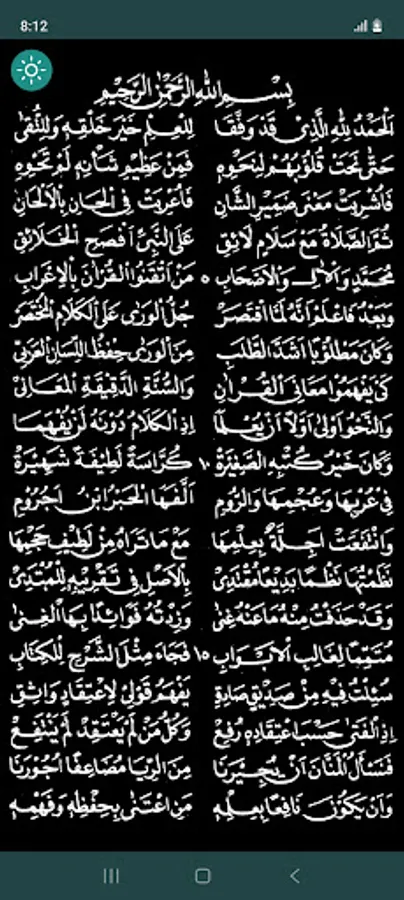 8:12
بِسْمِ اللهِ الرَّحْمٰنِ الرَّحِيْمِ
اَلْحَمْدُ لِلّٰهِ الَّذِىْ قَدْ وَفَّقَا لِلْعِلْمِ خَيْرَ خَلْقِهِ وَلِلتُّقٰى
حَتّٰى نَحَتْ قُلُوْبُهُمْ لِنَحْوِهِ فَمِنْ عَظِيْمِ شَأْنِهِ لَمْ تَحْوِهِ
فَاُشْرِبَتْ مَعْنٰى ضَمِيْرِ الشَّانِ فَاَعْرَبَتْ فِى الْحَانِ بِالْاَلْحَانِ
ثُمَّ الصَّلَاةُ مَعْ سَلَامٍ لَائِقِ عَلَى النَّبِيِّ اَفْصَحِ الْخَلَائِقِ
مُحَمَّدٍ وَالْاٰلِ وَالْاَصْحَابِ ٥ مَنْ اَتْقَنُوا الْقُرْاٰنَ بِالْاِعْرَابِ
وَبَعْدُ فَاعْلَمْ اَنَّهُ لَمَّا اقْتَصَرْ جُلُّ الْوَرٰى عَلَى الْكَلَامِ الْمُخْتَصَرْ
وَكَانَ مَطْلُوْبًا اَشَدَّ الطَّلَبِ مِنَ الْوَرٰى حِفْظُ اللِّسَانِ الْعَرَبِيْ
كَىْ يَفْهَمُوْا مَعَانِيَ الْقُرْاٰنِ وَالسُّنَّةِ الدَّقِيْقَةِ الْمَعَانِىْ
وَالنَّحْوُ اَوْلٰى اَوَّلًا اَنْ يُعْلَمَا اِذِ الْكَلَامُ دُوْنَهُ لَنْ يُفْهَمَا
وَكَانَ خَيْرُ كُتْبِهِ الصَّغِيْرَةْ ١٠ كُرَّاسَةً لَطِيْفَةً شَهِيْرَةْ
فِىْ عُرْبِهَا وَعُجْمِهَا وَالرُّوْمِ اَلَّفَهَا الْحَبْرُ ابْنُ اٰجُرُّوْمِ
وَانْتَفَعَتْ اَجِلَّةٌ بِعِلْمِهَا مَعْ مَا تَرَاهُ مِنْ لَطِيْفِ حَجْمِهَا
نَظَمْتُهَا نَظْمًا بَدِيْعًا مُقْتَدِىْ بِالْاَصْلِ فِىْ تَقْرِيْبِهِ لِلْمُبْتَدِىْ
وَقَدْ حَذَفْتُ مِنْهُ مَا عَنْهُ غِنٰى وَزِدْتُهُ فَوَائِدًا بِهَا الْغِنٰى
مُتَمِّمًا لِغَالِبِ الْاَبْوَابِ ١٥ فَجَاءَ مِثْلَ الشَّرْحِ لِلْكِتَابِ
سُئِلْتُ فِيْهِ مِنْ صَدِيْقٍ صَادِقِ يَفْهَمُ قَوْلِىْ لِاعْتِقَادٍ وَاثِقِ
اِذِ الْفَتٰى حَسْبَ اعْتِقَادِهِ رُفِعْ وَكُلُّ مَنْ لَمْ يَعْتَقِدْ لَمْ يَنْتَفِعْ
فَنَسْأَلُ الْمَنَّانَ اَنْ يُجِيْرَنَا مِنَ الرِّيَا مُضَاعِفًا اُجُوْرَنَا
وَاَنْ يَكُوْنَ نَافِعًا بِعِلْمِهِ مَنِ اعْتَنٰى بِحِفْظِهِ وَفَهْمِهِ